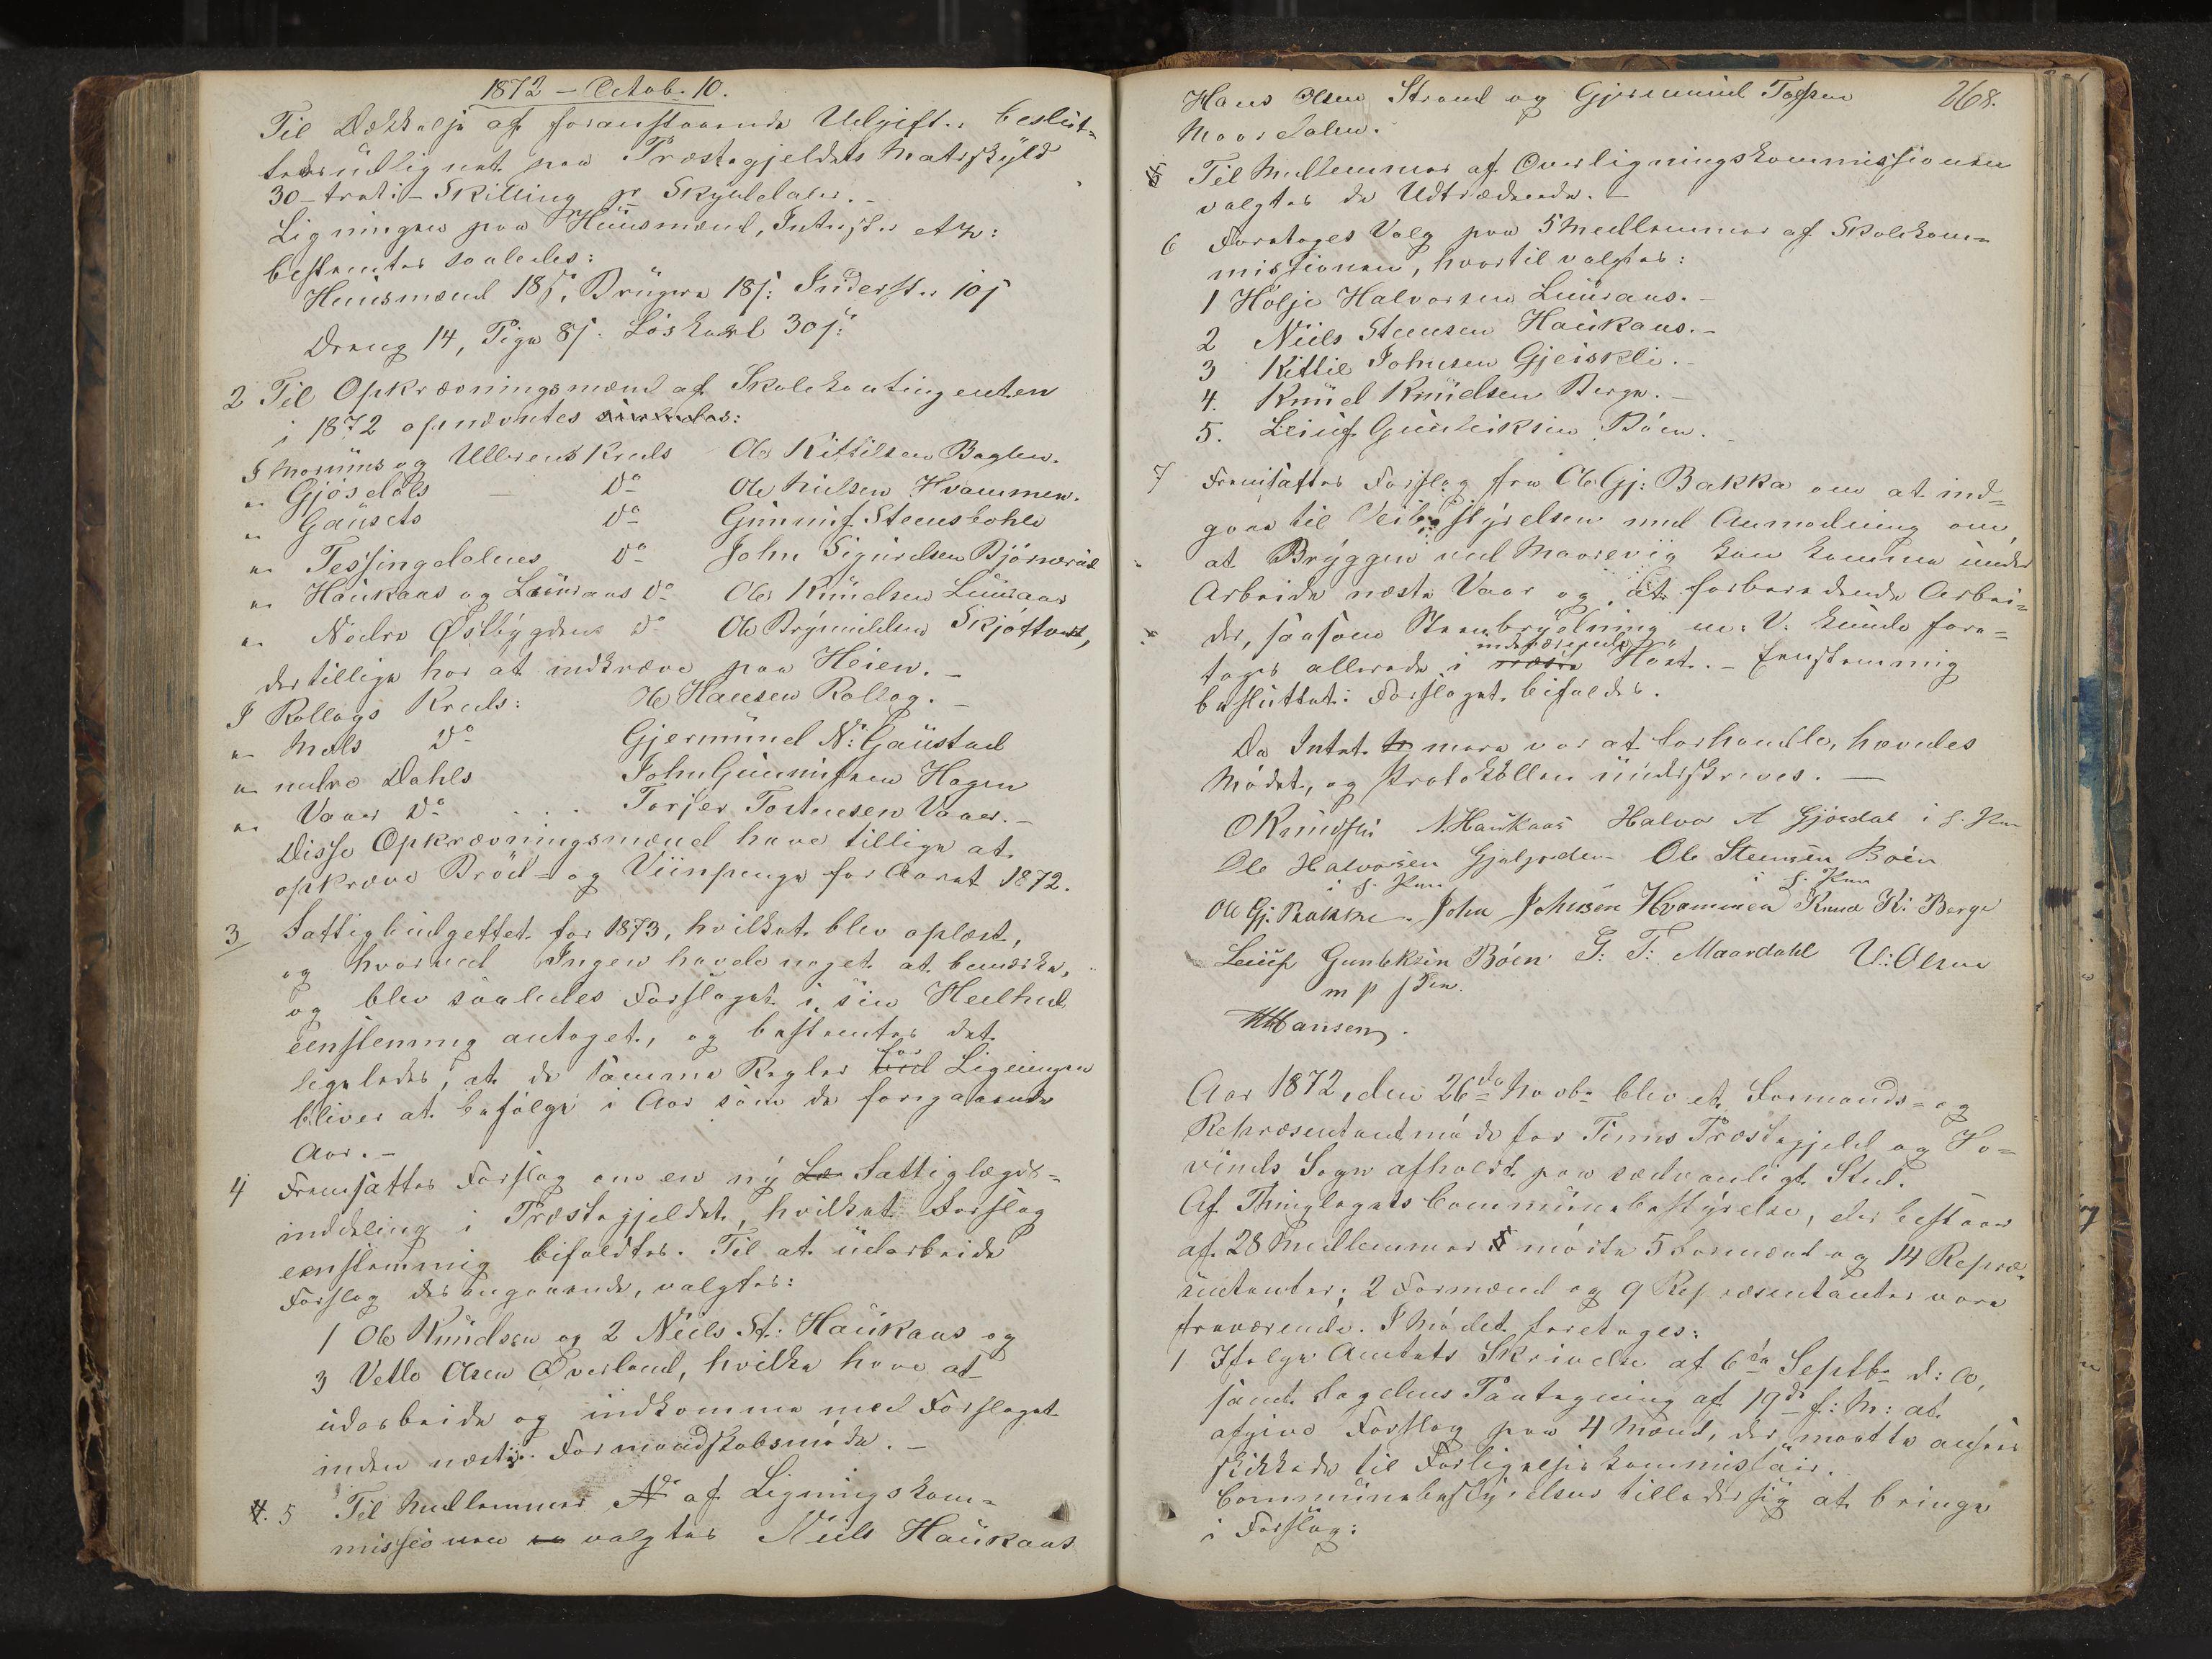 1872 – Octob. 10.
Til Dækkelse af foranstaaende Udgifter beslut-
tedes udlignet paa Præstegjeldets Matrskyld
30 – treti – Skilling pr Skylddaler. –
Ligningen paa Huusmænd, Inderster etc:
bestemtes saaledes:
Huusmænd 18 s, Brugere 18 s: Inderster 10 s
Dreng 14, Pige 8 s. Løskarl 30 s:
2 Til Opkrævningsmænd af Skolekontingenten
i 1872 opnævntes saaledes:
I Marums og Ullerens Kreds Ole Kittilsen Baglen.
" Gjøsdals – Do Ole Nielsen Hvammen.
" Gausets Do Gunnuf Steensbøhle
" Tessingdalens Do John Sigurdsen Bjørnerud
" Haukaas og Luuraas Do Ole Knudsen Luuraas
" Nedre Østbygdens Do Ole Brynildsen Skjøttvet,
der tillige har at indkræve paa Heien. –
I Rollags Kreds: Ole Hansen Rollag. –
" Mæls Do Gjermund N: Gaustad
" nedre Dahls John Gunnufsen Hagen
" Vaaer Do Torjer Tostensen Vaaer. –
Disse Opkrævningsmænd have tillige at
opkræve Brød- og Viinpenge for Aaret 1872.
3 Fattigbudgettet for 1873, hvilket blev oplæst,
og hvorved Ingen havde noget at bemærke,
og blev saaledes Forslaget i sin Heelhed
eenstemmig antaget, og bestemtes det
ligeledes, at de samme Regler ved for Ligningen
bliver at befølge i Aar som de foregaaende
Aar. –
4 Fremsattes Forslag om en ny Læ Fattiglægds-
inddeling i Præstegjeldet, hvilket Forslag
eenstemmig bifaldtes. Til at udarbeide
Forslag desangaaende, valgtes:
1 Ole Knudsen og 2 Niels St: Haukaas og
3 Vetle Olsen Øverland, hvilke have at
udarbeide og indkomme med Forslaget
inden næste Formandskabsmøde. –
4. 5 Til Medlemmer af Ligningskom-
missionen valgtes Niels Haukaas
268.
Hans Olsen Strand og Gjermund Tovsen
Maardalen.
5 Til Medlemmer af Overligningskommissionen
valgtes de Udtrædende. –
6 Foretoges Valg paa 5 Medlemmer af Skolekom-
missionen, hvortil valgtes:
1 Hølje Halvorsen Luuraas. –
2 Niels Steensen Haukaas. –
3 Kittil Johnsen Gjeiskli. –
4. Knud Knudsen Berge. –
5. Leiuf Gunleiksen Bøen. –
7 Fremsattes Forslag fra Ole Gj: Bakka om at ind-
gaae til Veibestyrelsen med Anmodning om
at Bryggen ved Maarevig kan komme under
Arbeide næste Vaar og at forberedende Arbei-
der, saasom Steenbrydning m: V. kunde fore-
tages allerede i næste indeværende Høst. – Eenstemmig
besluttet: Forslaget bifaldes.
Da Intet mere var at forhandle, hævedes
Mødet, og Protokollen underskreves. –
O Knudsen N. Haukaas Halvor A Gjøsdal i f. Pen
Ole Halvorsen Ole Steensen Bøen
i f. Pen i f. Pen
Ole Gj. Bakke. John Johnsen Hvammen Knud K: Berge
Leiuf Gunleksen Bøen G: T: Maardahl V: Olsen
m p f Pen.
HHansen.
Aar 1872, den 26de Novbr blev et Formands- og
Repræsentantmøde for Tinns Præstegjeld og Ho-
vinds Sogn afholdt paa sædvanligt Sted.
Af Thinglagets Communebestyrelse, der bestaar
af 28 Medlemmer mødte 5 Formænd og 14 Repræ-
sentanter; 2 Formænd og 9 Repræsentanter vare
fraværende. I Mødet foretoges:
1 Ifølge Amtets Skrivelse af 6te Septbr d: A,
samt Fogdens Paategning af 19de f: M: at
afgive Forslag paa 4 Mænd, der maatte ansees
skikkede til Forligelseskommissair.
Communebestyrelsen tillader sig at bringe
i Forslag: